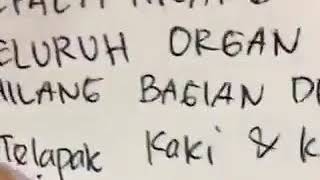 ELURUH ORGAN
HILANG BAGIAN D
Telapak Kaki & K